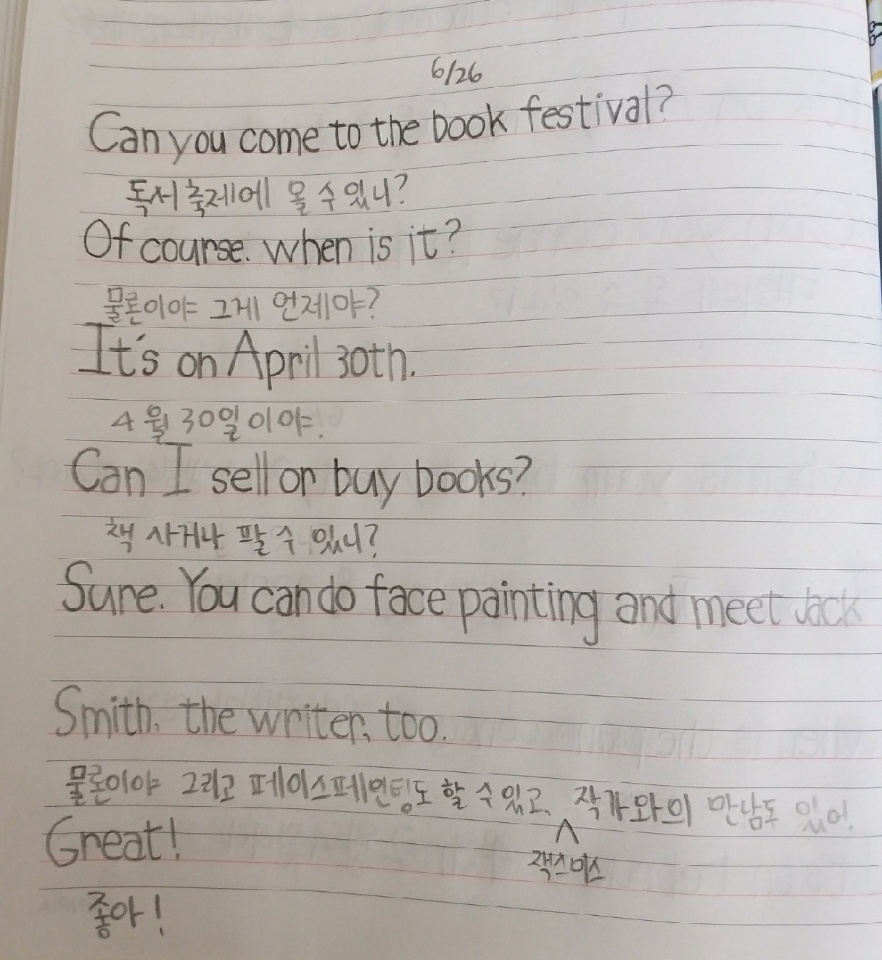 6/26
Can you come to the book festival?
독서축제에 올 수 있니?
Of course. when is it?
물론이야 그게 언제야?
It's on April 30th.
4월 30일이야.
Can I sell or buy books?
책 사거나 팔 수 있니?
Sure. You can do face painting and meet Jack
Smith, the writer, too.
물론이야 그리고 페이스페인팅도 할 수 있고, 작가와의 만남도 있어.
잭스미스
Great!
좋아!